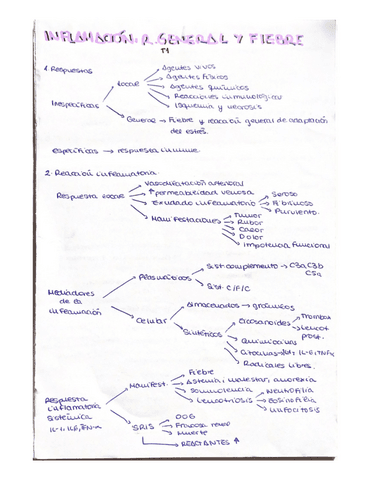 INFLAMACIÓN, R. GENERAL Y FIEBRE
T1
1. Respuestas
Inespecíficas
Local
Agentes vivos
Agentes físicos
Agentes químicos
Reacciones inmunológicas
Isquemia y necrosis
General → Fiebre y reacción general de adaptación
del estrés.
específicas → respuesta inmune.
2. Reacción inflamatoria
Respuesta local
Vasodilatación arterial
↑ permeabilidad venosa
Exudado inflamatorio
Seroso
Fibrinoso
Purulento.
Manifestaciones
Tumor
Rubor
Calor
Dolor
Impotencia funcional
Mediadores
de la
inflamación
Plasmáticos
Sist complemento → C3a C3b
C5a
Sist. C/F/C
Celular
Almacenados → gránulos
Sintéticos
Eicosanoides
Trombox
Leucot
Quimiocinas
Citocinas
IL-6, TNFα
Radicales libres.
Respuesta
inflamatoria
sistémica
IL-1, IL6, TNF-α
Manifest.
Fiebre
Astenia, malestar, anorexia
Somnolencia
Leucocitosis
Neutrofilia
Eosinofilia
Linfocitosis
SRIS
Fracaso renal
Muerte
REACTANTES ↑